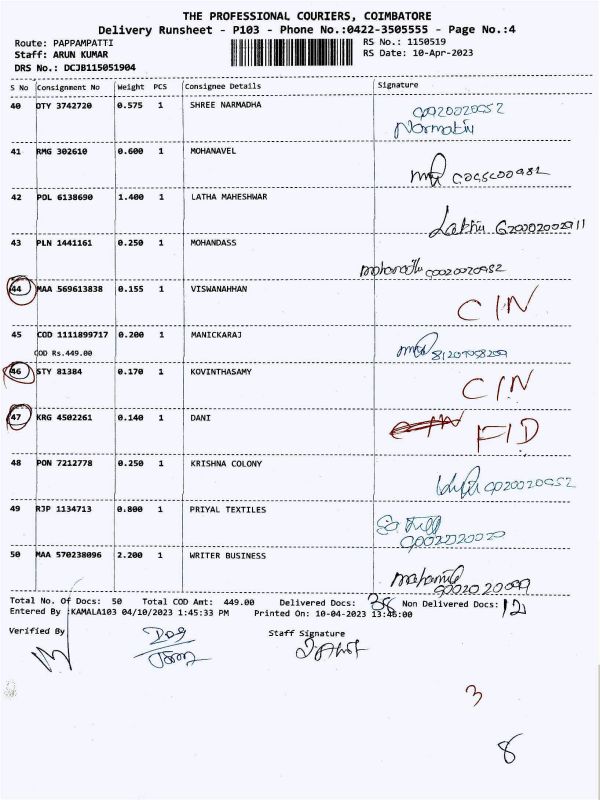 THE PROFESSIONAL COURIERS, COIMBATORE
Delivery Runsheet - P103 - Phone No.:0422-3505555 - Page No.:4
Route: PAPPAMPATTI RS No.: 1150519
Staff: ARUN KUMAR RS Date: 10-Apr-2023
DRS No.: DCJB115051904
S No Consignment No Weight PCS Consignee Details Signature
40 DTY 3742720 0.575 1 SHREE NARMADHA
41 RMG 302610 0.600 1 MOHANAVEL
42 POL 6138690 1.400 1 LATHA MAHESHWAR
43 PLN 1441161 0.250 1 MOHANDASS
44 MAA 569613838 0.155 1 VISWANAHHAN CIN
45 COD 1111899717 0.200 1 MANICKARAJ
COD Rs.449.00
46 STY 81384 0.170 1 KOVINTHASAMY CIN
47 KRG 4502261 0.140 1 DANI FID
48 PON 7212778 0.250 1 KRISHNA COLONY
49 RJP 1134713 0.800 1 PRIYAL TEXTILES
50 MAA 570238096 2.200 1 WRITER BUSINESS
Total No. Of Docs: 50 Total COD Amt: 449.00 Delivered Docs: 38 Non Delivered Docs: 12
Entered By :KAMALA103 04/10/2023 1:45:33 PM Printed On: 10-04-2023 13:46:00
Verified By Staff Signature
3
8